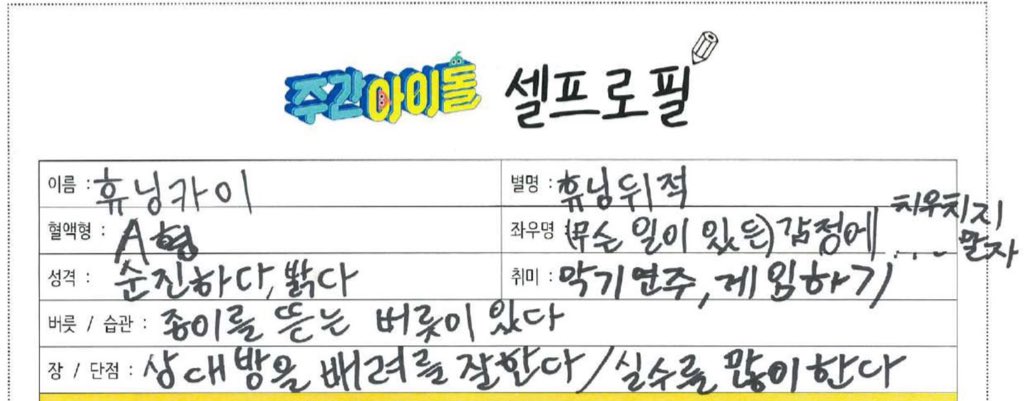 주간아이돌 셀프로필
이름 : 휴닝카이
별명 : 휴닝뒤적
혈액형 : A형
좌우명 : (무슨 일이 있든) 감정에 치우치지 말자
성격 : 순진하다, 밝다
취미 : 악기연주, 게임하기
버릇 / 습관 : 종이를 뜯는 버릇이 있다
장 / 단점 : 상대방을 배려를 잘한다 / 실수를 많이 한다